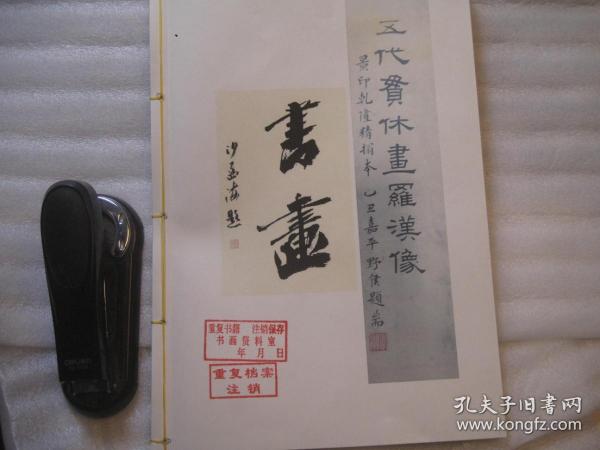 五代贯休畫羅漢像
景印乾隆精搨本 乙丑嘉平野侯題耑
書畫
沙孟海題
重复书籍 注销保存
书画资料室
年 月 日
重复档案
注销
孔夫子旧书网
www.kongfz.com